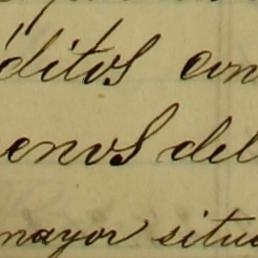 ditos con
enos del
mayor situa